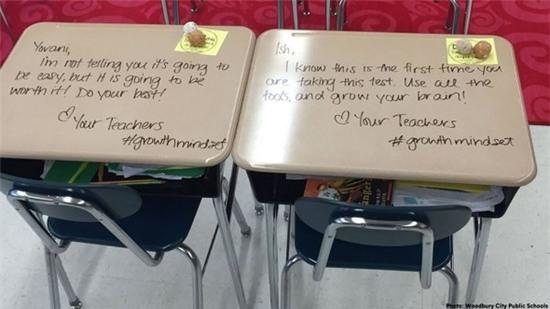 Yovani,
I'm not telling you it's going to
be easy, but it is going to be
worth it! Do your best!
♡ Your Teachers
#growthmindset
Ish,
I know this is the first time you
are taking this test. Use all the
tools, and grow your brain!
♡ Your Teachers
#growthmindset
Photo: Woodbury City Public Schools